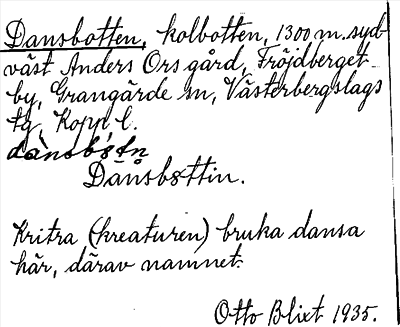 Dansbotten, kolbotten, 1300 m. syd-
väst Anders Ors gård, Fröjdberget
by, Grangärde sn, Västerbergslags
tg, Kopp. l.
Dansbottin.
Kritra (kreaturen) bruka dansa
här, därav namnet.
Otto Blixt 1935.